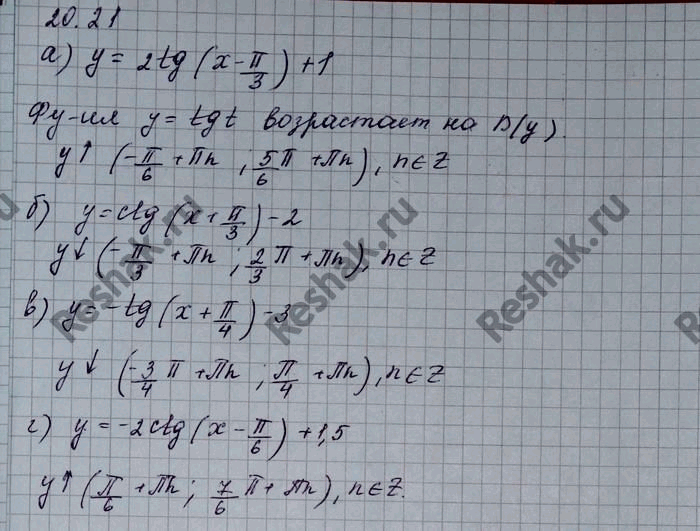 20.21
а) y = 2tg(x - π/3) + 1
Фу-ия y = tgt возрастает на D(y).
y↑ (-π/6 + πn ; 5/6 π + πn), n∈Z
б) y = ctg(x + π/3) - 2
y↓ (-π/3 + πn ; 2/3 π + πn), n∈Z
в) y = -tg(x + π/4) - 3
y↓ (-3/4 π + πn ; π/4 + πn), n∈Z
г) y = -2ctg(x - π/6) + 1,5
y↑ (π/6 + πn ; 7/6 π + πn), n∈Z.
Reshak.ru
Reshak.ru
Reshak.ru
Reshak.ru